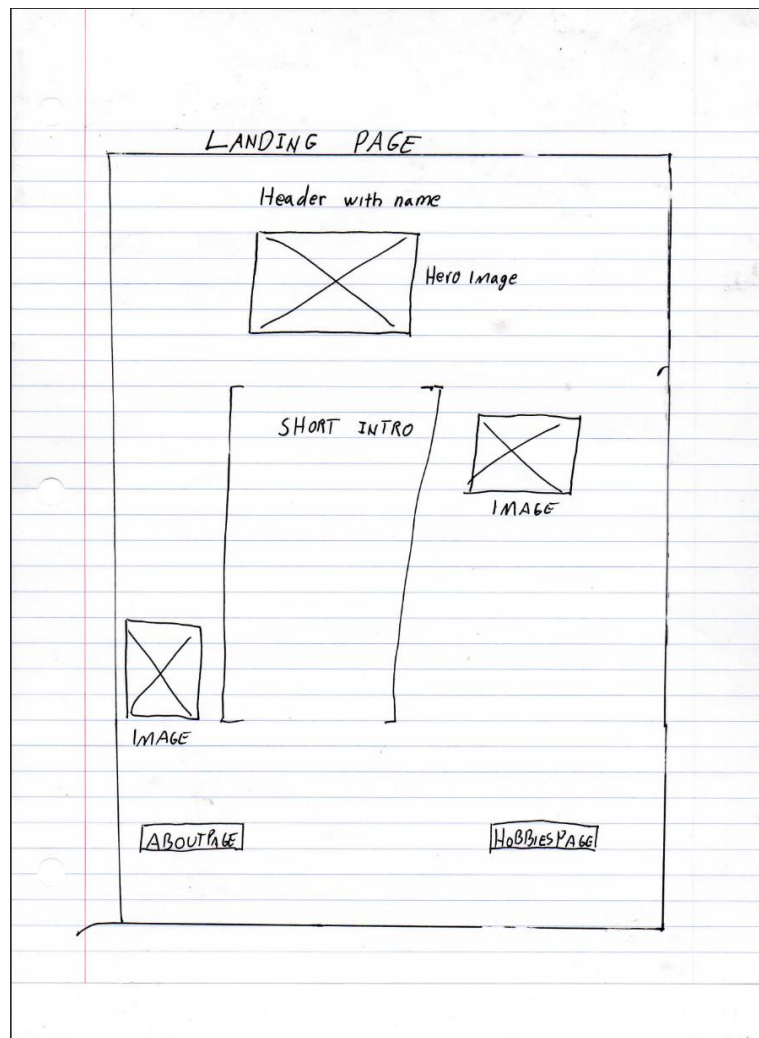 LANDING PAGE
Header with name
Hero Image
SHORT INTRO
IMAGE
IMAGE
ABOUTPAGE
HOBBIESPAGE